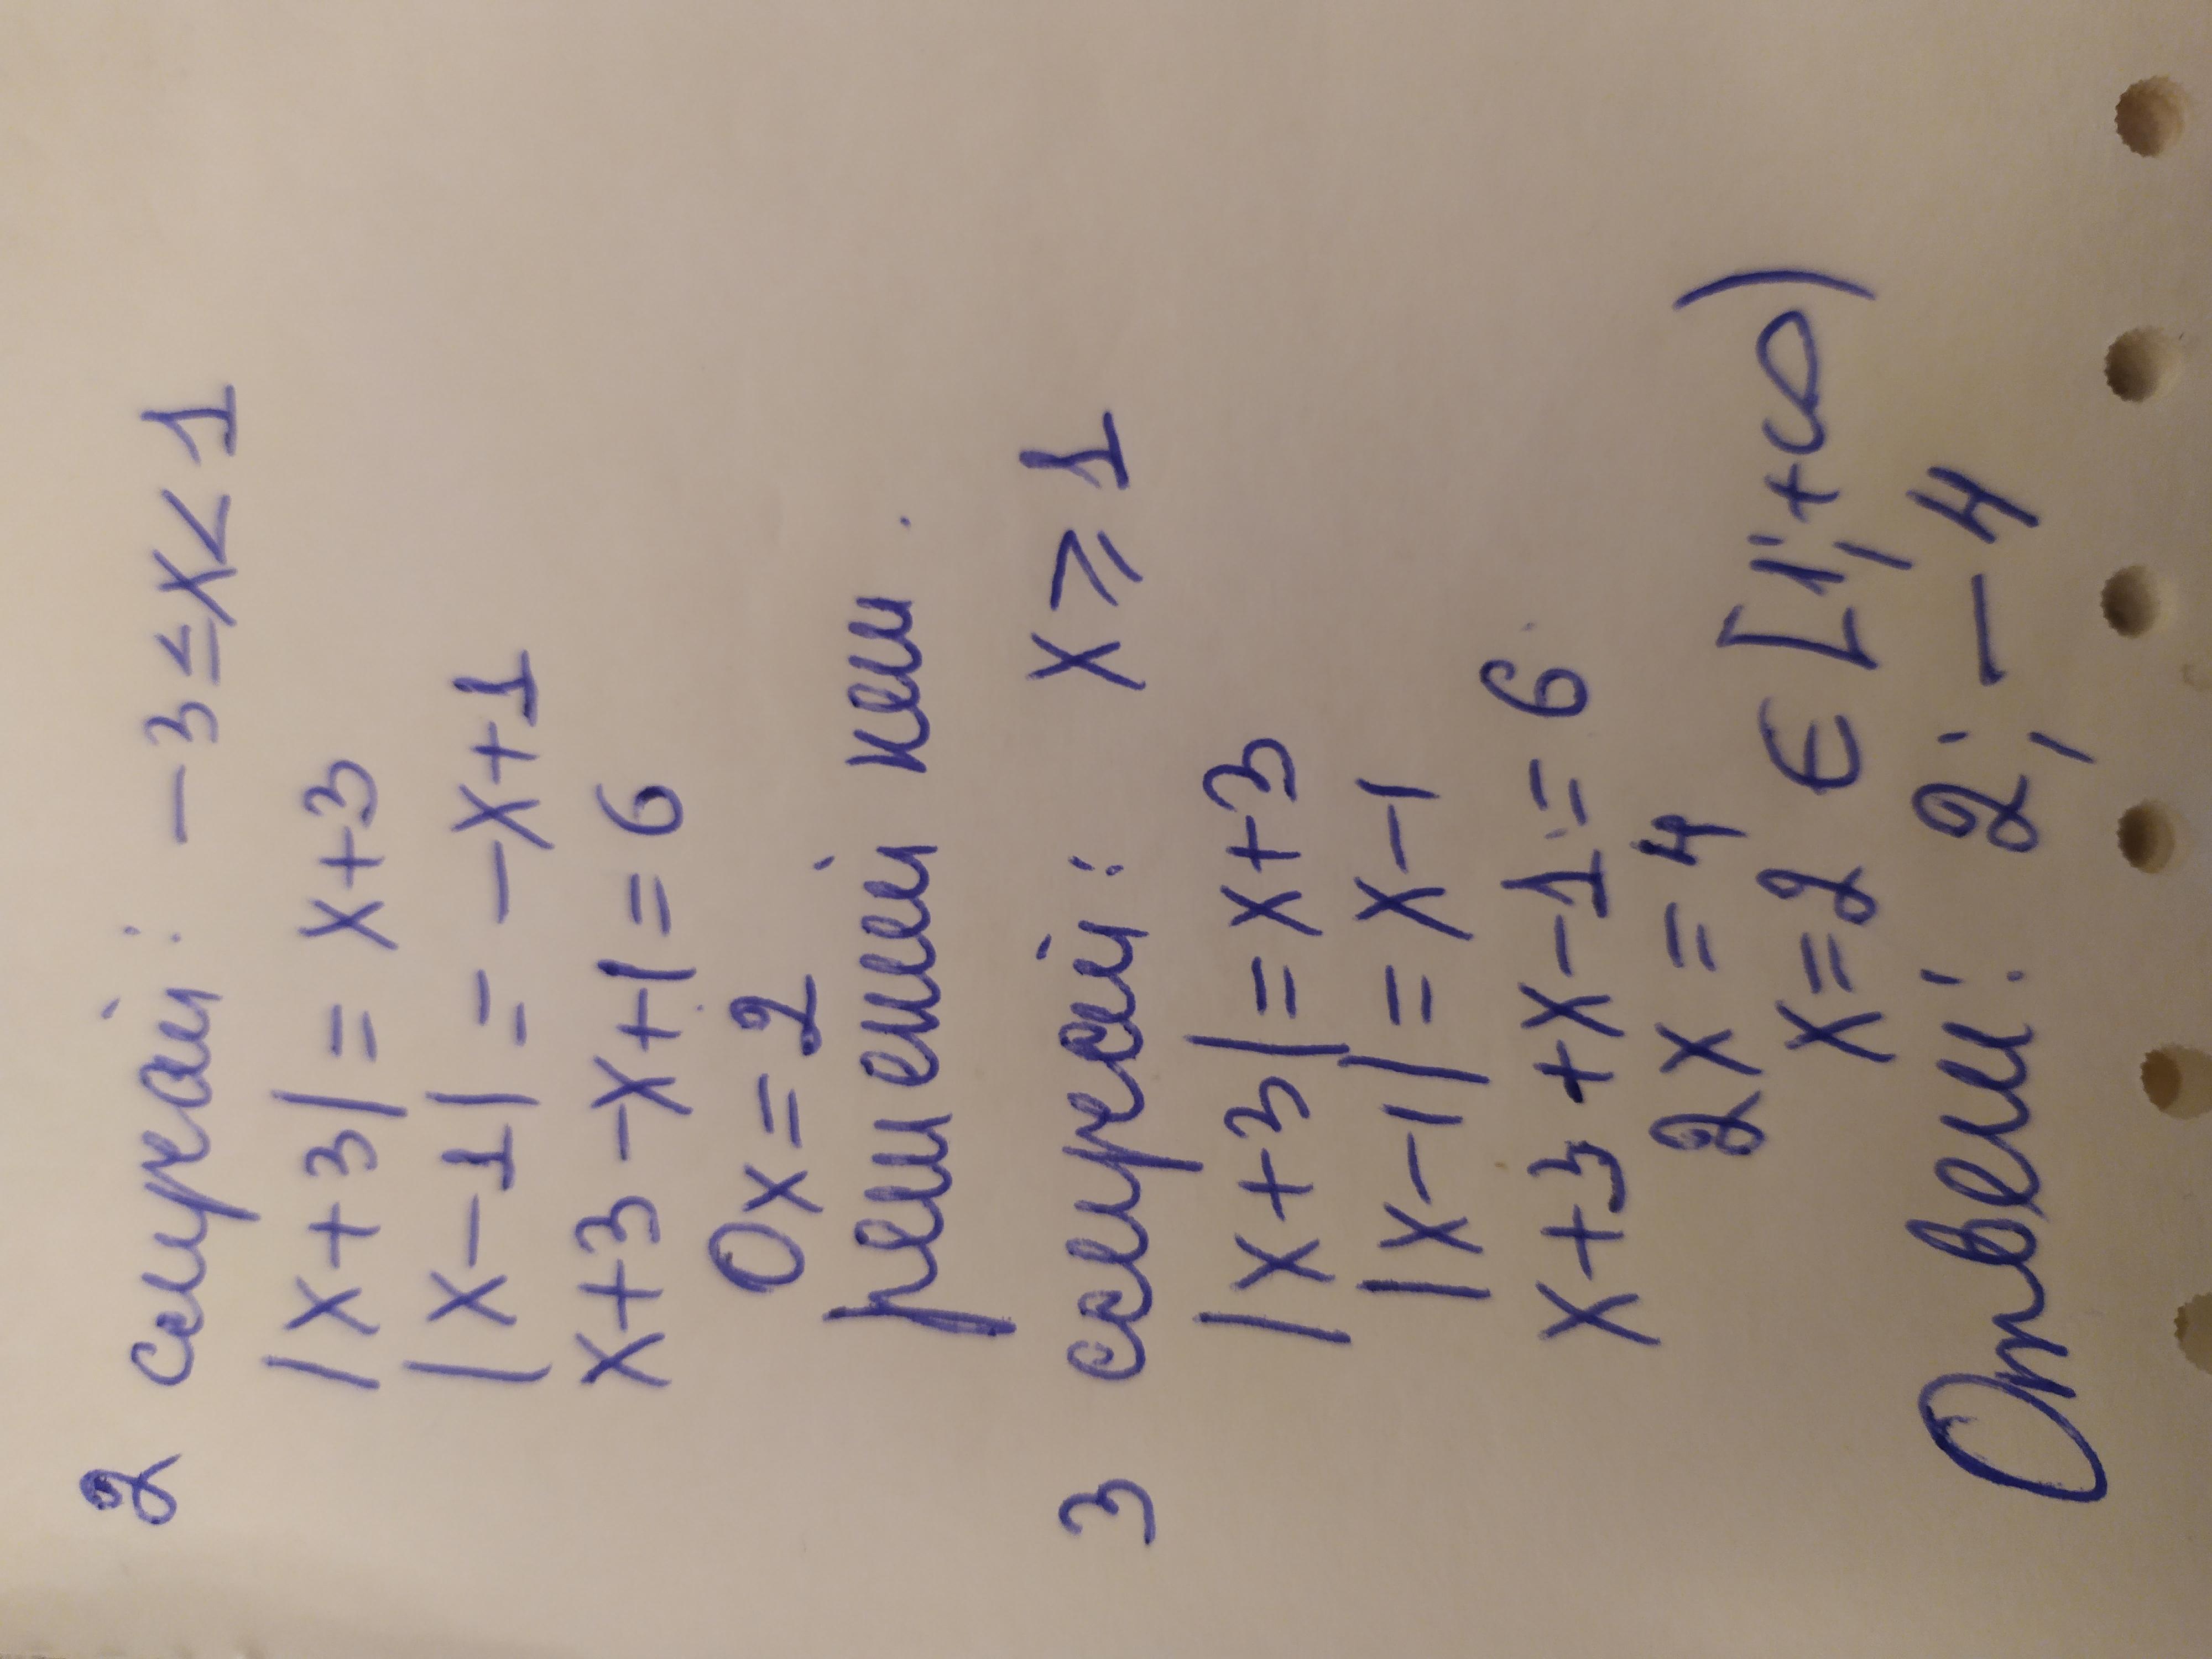 2 случай: -3≤x<1
|x+3|=x+3
|x-1|=-x+1
x+3-x+1=6
0x=2
решений нет.
3 случай: x⩾1
|x+3|=x+3
|x-1|=x-1
x+3+x-1=6
2x=4
x=2 ∈ [1;+∞)
Ответ: 2; -4